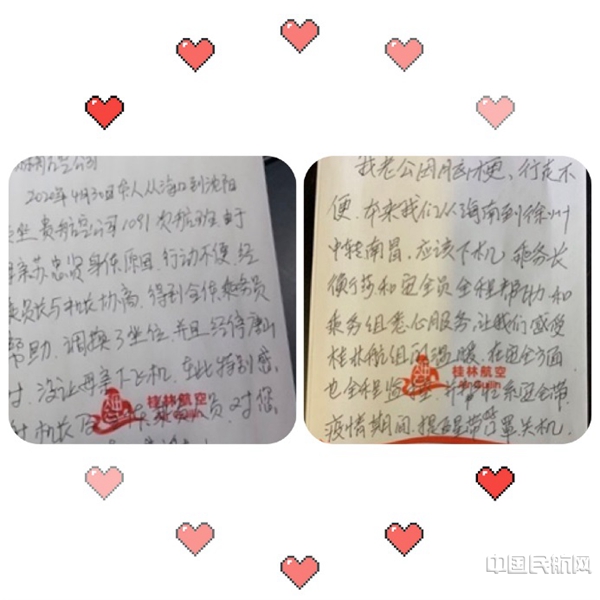 2020年4月30日本人从海口到沈阳
坐贵航空公司1091次航班由于
母亲苏忠贤身体原因.行动不便.经
乘务长与机长协商.得到全体乘务员
帮助.调换了坐位.并且经停唐山
时.没让母亲下飞机.在此特别感
谢机长及 乘务员.对您
我老公因脑梗,行走不
便.本来我们从海南到徐州
中转南昌.应该下机,乘务长
和安全员全程帮助和
乘务组悉心服务,让我们感受
桂林航组的温暖.在安全方面
也全程监 系安全带.
疫情期间,提醒带口罩关机.
桂林航空
桂林航空
中国民航网